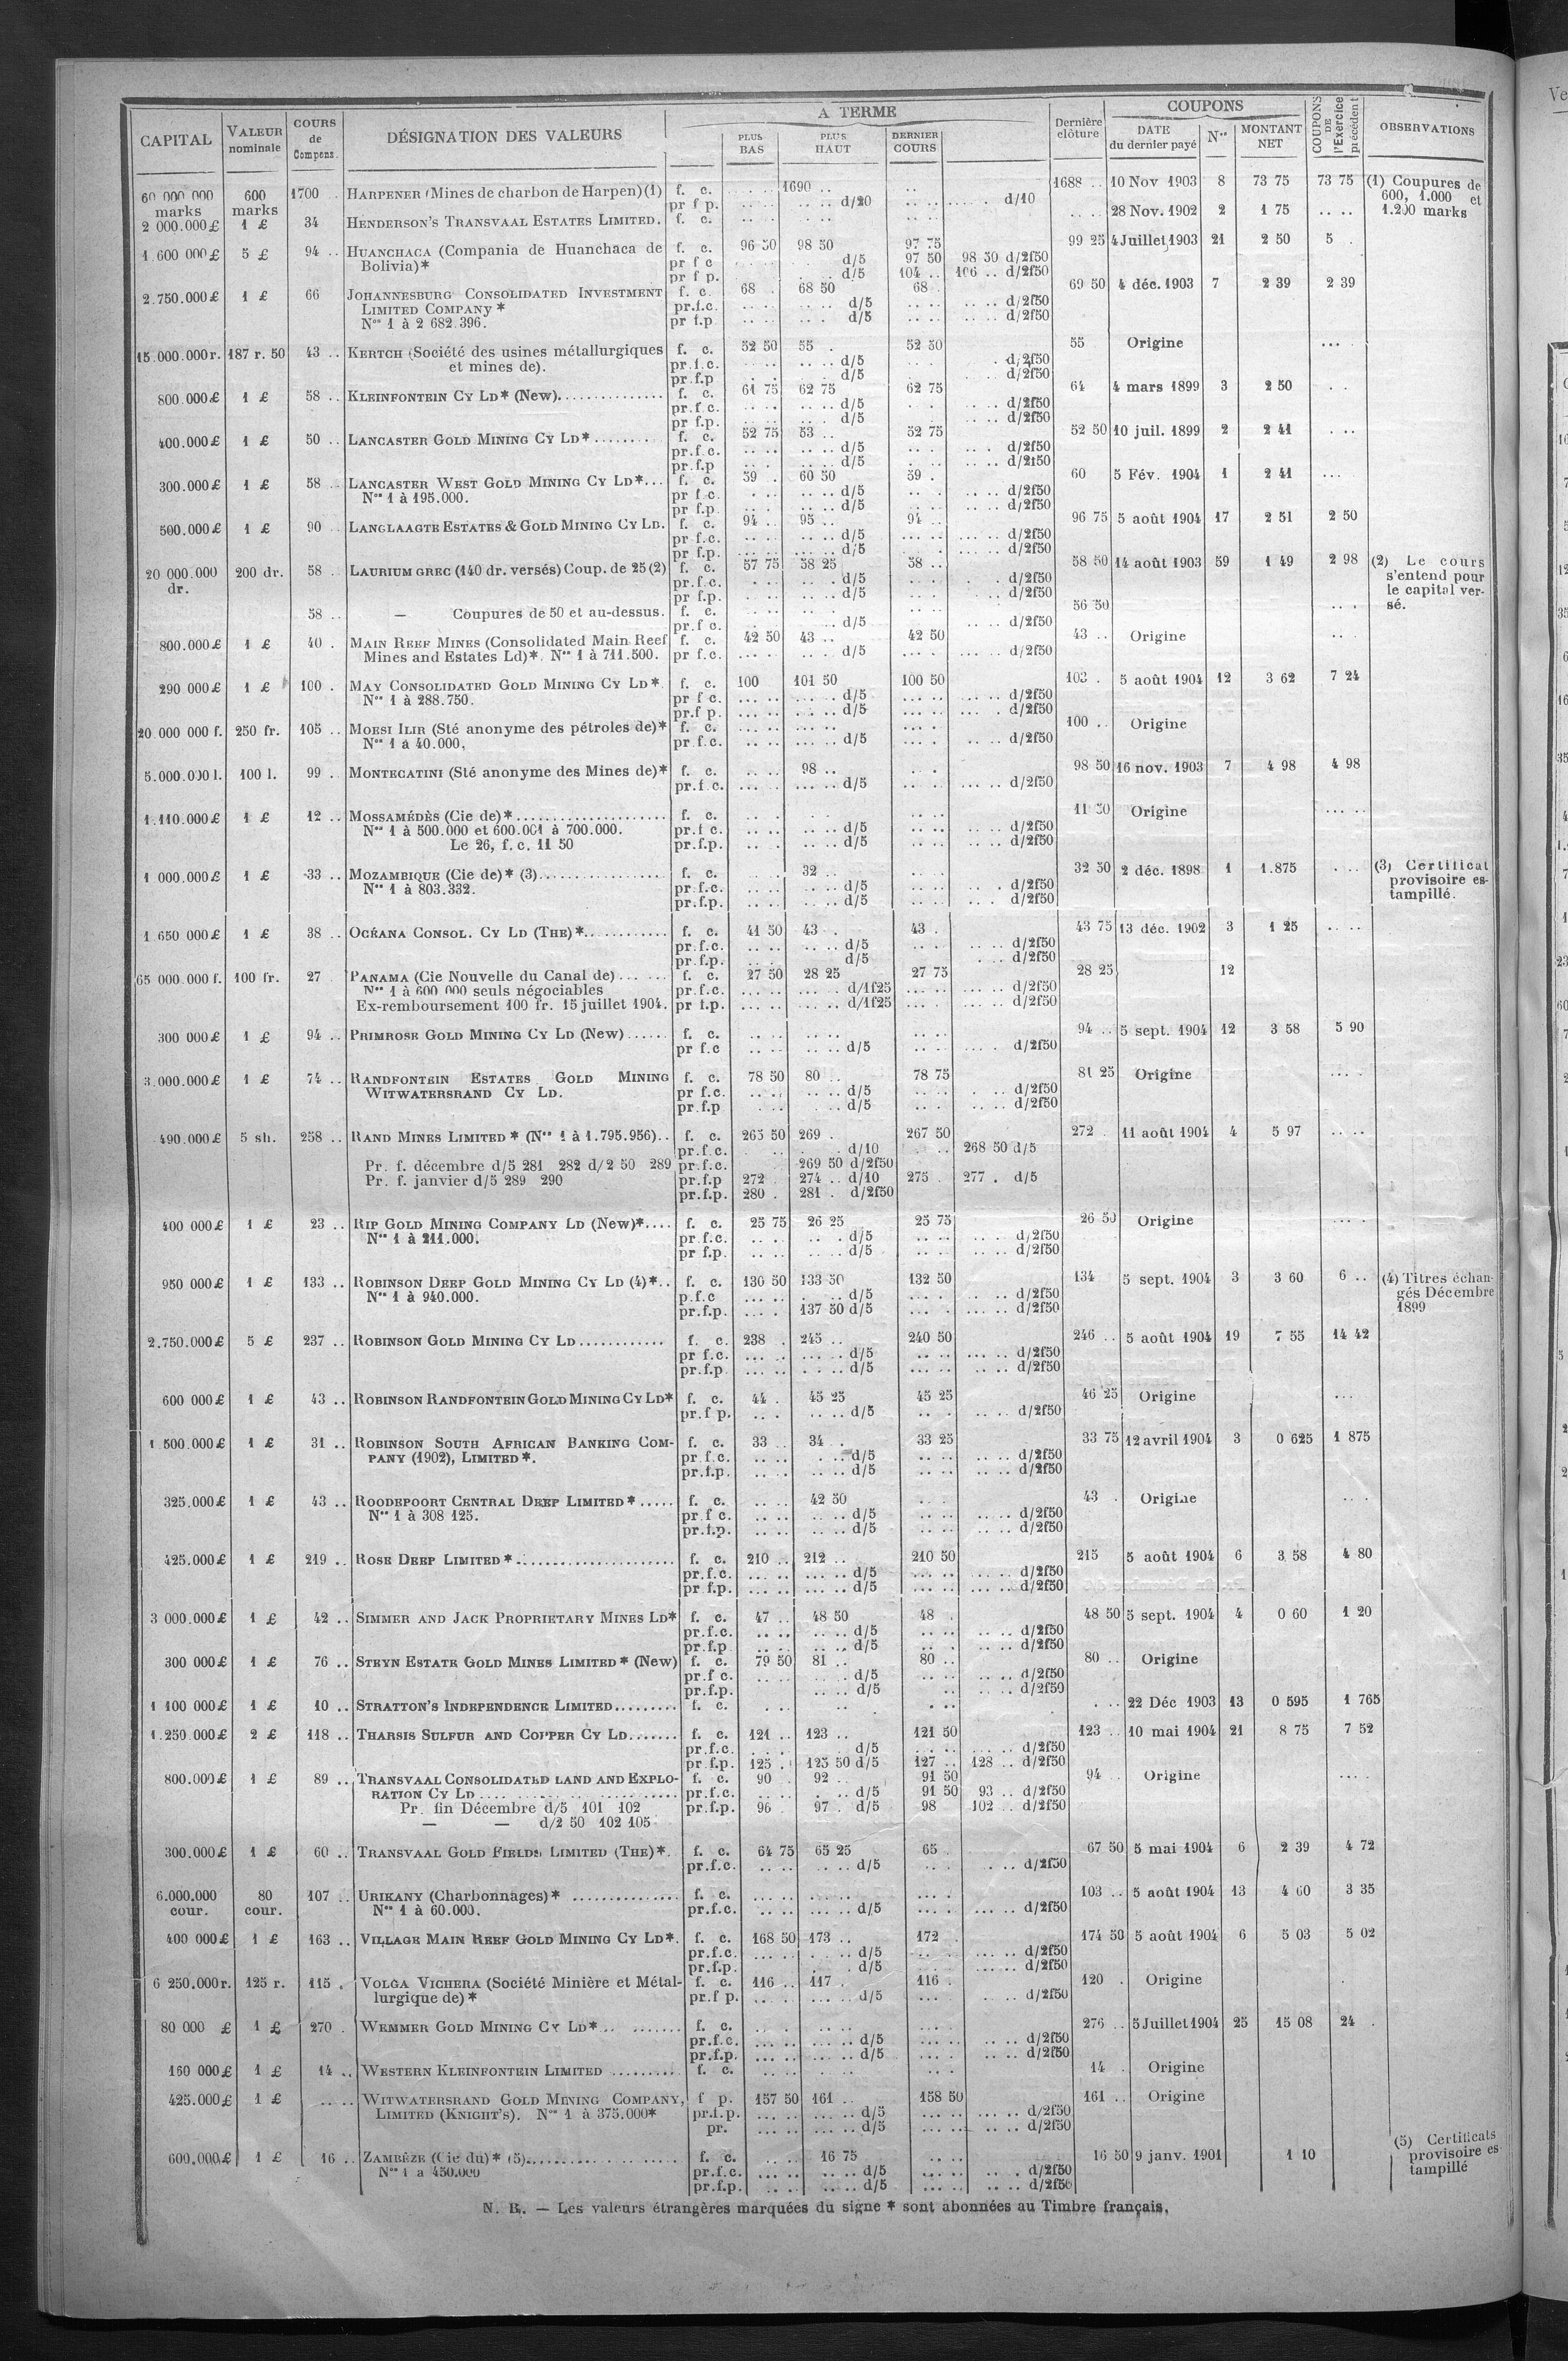 CAPITAL VALEUR nominale COURS de Compens. DÉSIGNATION DES VALEURS A TERME PLUS BAS PLUS HAUT DERNIER COURS Dernière clôture COUPONS DATE du dernier payé Nos MONTANT NET COUPONS DE l'Exercice précédent OBSERVATIONS
60 000 000 marks 600 marks 1700 .. HARPENER (Mines de charbon de Harpen) (1) f. c. .. .. 1690 .. .. 1688 .. 10 Nov 1903 8 73 75 73 75 (1) Coupures de 600, 1.000 et 1.200 marks
pr f p. .. .. d/20 .. .. d/10
2 000.000 £ 1 £ 34 HENDERSON'S TRANSVAAL ESTATES LIMITED. f. c. .. .. 28 Nov. 1902 2 1 75 .. ..
1.600 000 £ 5 £ 94 .. HUANCHACA (Compania de Huanchaca de f. c. 96 50 98 50 97 75 99 25 4 Juillet 1903 21 2 50 5 .
Bolivia)* pr f c d/5 97 50 98 50 d/2f50
pr f p. d/5 104 .. 106 .. d/2f50
2.750.000 £ 1 £ 66 JOHANNESBURG CONSOLIDATED INVESTMENT f. c. 68 . 68 50 68 . 69 50 4 déc. 1903 7 2 39 2 39
LIMITED COMPANY * pr.f.c. d/5 d/2f50
Nos 1 à 2 682.396. pr f.p d/5 d/2f50
15.000.000 r. 187 r. 50 43 .. KERTCH (Société des usines métallurgiques f. c. 52 50 55 . 52 50 55 Origine
et mines de). pr.f.c. d/5 d/2f50
pr.f.p d/5 d/2f50
800.000 £ 1 £ 58 .. KLEINFONTEIN CY LD* (New). f. c. 61 75 62 75 62 75 64 4 mars 1899 3 2 50
pr.f c. d/5 d/2f50
pr f.p. d/5 d/2f50
400.000 £ 1 £ 50 .. LANCASTER GOLD MINING CY LD* f. c. 52 75 53 .. 52 75 52 50 10 juil. 1899 2 2 41
pr.f.c. d/5 d/2f50
pr.f.p d/5 d/2f50
300.000 £ 1 £ 58 .. LANCASTER WEST GOLD MINING CY LD* f. c. 59 . 60 50 59 . 60 5 Fév. 1904 1 2 41
Nos 1 à 195.000. pr f c. d/5 d/2f50
pr f.p. d/5 d/2f50
500.000 £ 1 £ 90 LANGLAAGTE ESTATES & GOLD MINING CY LD. f. c. 94 .. 95 .. 94 .. 96 75 5 août 1904 17 2 51 2 50
pr f.c. d/5 d/2f50
pr f.p. d/5 d/2f50
20 000.000 dr. 200 dr. 58 . LAURIUM GREC (140 dr. versés) Coup. de 25 (2) f. c. 57 75 58 25 58 .. 58 50 14 août 1903 59 1 49 2 98 (2) Le cours s'entend pour le capital versé.
pr.f.c. d/5 d/2f50
pr f.p. d/5 d/2f50
58 .. — Coupures de 50 et au-dessus. f. c. 56 50
pr.f c. d/5 d/2f50
800.000 £ 1 £ 40 . MAIN REEF MINES (Consolidated Main Reef f. c. 42 50 43 .. 42 50 43 .. Origine
Mines and Estates Ld)*. Nos 1 à 711.500. pr f.c. d/5 d/2f50
290 000 £ 1 £ 100 . MAY CONSOLIDATED GOLD MINING CY LD* f. c. 100 101 50 100 50 103 . 5 août 1904 12 3 62 7 24
Nos 1 à 288.750. pr f c. d/5 d/2f50
pr.f p. d/5 d/2f50
20 000 000 f. 250 fr. 105 .. MOESI ILIR (Sté anonyme des pétroles de)* f. c. 100 .. Origine
Nos 1 à 40.000. pr f.c. d/5 d/2f50
5.000.000 l. 100 l. 99 .. MONTECATINI (Sté anonyme des Mines de)* f. c. 98 .. 98 50 16 nov. 1903 7 4 98 4 98
pr.f.c. d/5 d/2f50
1.110.000 £ 1 £ 12 .. MOSSAMÉDÈS (Cie de)* f. c. 11 50 Origine
Nos 1 à 500.000 et 600.001 à 700.000. pr.f c. d/5 d/2f50
Le 26, f. c. 11 50 pr.f.p. d/5 d/2f50
1 000.000 £ 1 £ 33 .. MOZAMBIQUE (Cie de)* (3) f. c. 32 .. 32 50 2 déc. 1898 1 1.875 (3) Certificat provisoire estampillé.
Nos 1 à 803.332. pr.f.c. d/5 d/2f50
pr.f.p. d/5 d/2f50
1 650 000 £ 1 £ 38 .. OCÉANA CONSOL. CY LD (THE)* f. c. 41 50 43 . 43 . 43 75 13 déc. 1902 3 1 25
pr.f.c. d/5 d/2f50
pr.f.p. d/5 d/2f50
65 000.000 f. 100 fr. 27 PANAMA (Cie Nouvelle du Canal de) f. c. 27 50 28 25 27 75 28 25 12
Nos 1 à 600 000 seuls négociables pr.f.c. d/1f25 d/2f50
Ex-remboursement 100 fr. 15 juillet 1904. pr f.p. d/1f25 d/2f50
300 000 £ 1 £ 94 .. PRIMROSE GOLD MINING CY LD (New) f. c. 94 .. 5 sept. 1904 12 3 58 5 90
pr f.c d/5 d/2f50
3.000.000 £ 1 £ 74 .. RANDFONTEIN ESTATES GOLD MINING f. c. 78 50 80 .. 78 75 81 25 Origine
WITWATERSRAND CY LD. pr f.c. d/5 d/2f50
pr.f.p d/5 d/2f50
490.000 £ 5 sh. 258 .. RAND MINES LIMITED * (Nos 1 à 1.795.956) f. c. 265 50 269 . 267 50 272 . 11 août 1904 4 5 97
pr.f.c. d/10 268 50 d/5
Pr. f. décembre d/5 281 282 d/2 50 289 pr.f.c. 269 50 d/2f50
Pr. f. janvier d/5 289 290 pr.f.p 272 274 .. d/10 275 . 277 . d/5
pr.f.p. 280 . 281 . d/2f50
400 000 £ 1 £ 23 .. RIP GOLD MINING COMPANY LD (New)* f. c. 25 75 26 25 25 75 26 50 Origine
Nos 1 à 211.000. pr f.c. d/5 d/2f50
pr f.p. d/5 d/2f50
950 000 £ 1 £ 133 .. ROBINSON DEEP GOLD MINING CY LD (4)* f. c. 130 50 133 50 132 50 134 5 sept. 1904 3 3 60 6 .. (4) Titres échangés Décembre 1899
Nos 1 à 940.000. p.f.c d/5 d/2f50
pr.f.p. 137 50 d/5 d/2f50
2.750.000 £ 5 £ 237 .. ROBINSON GOLD MINING CY LD f. c. 238 . 245 .. 240 50 246 .. 5 août 1904 19 7 55 14 42
pr f.c. d/5 d/2f50
pr.f.p d/5 d/2f50
600 000 £ 1 £ 43 .. ROBINSON RANDFONTEIN GOLD MINING CY LD* f. c. 44 . 45 25 45 25 46 25 Origine
pr.f p. d/5 d/2f50
1 500.000 £ 1 £ 31 .. ROBINSON SOUTH AFRICAN BANKING COM- f. c. 33 .. 34 . 33 25 33 75 12 avril 1904 3 0 625 1 875
PANY (1902), LIMITED*. pr f.c. d/5 d/2f50
pr.f.p. d/5 d/2f50
325.000 £ 1 £ 43 .. ROODEPOORT CENTRAL DEEP LIMITED* f. c. 42 50 43 . Origine
Nos 1 à 308 125. pr f c. d/5 d/2f50
pr.f.p. d/5 d/2f50
425.000 £ 1 £ 219 .. ROSE DEEP LIMITED* f. c. 210 .. 212 .. 210 50 215 5 août 1904 6 3 58 4 80
pr.f.c. d/5 d/2f50
pr f.p. d/5 d/2f50
3 000.000 £ 1 £ 42 .. SIMMER AND JACK PROPRIETARY MINES LD* f. c. 47 .. 48 50 48 . 48 50 5 sept. 1904 4 0 60 1 20
pr.f.c. d/5 d/2f50
pr.f.p d/5 d/2f50
300 000 £ 1 £ 76 .. STEYN ESTATE GOLD MINES LIMITED* (New) f. c. 79 50 81 .. 80 .. 80 .. Origine
pr.f c. d/5 d/2f50
pr.f.p. d/5 d/2f50
1 100 000 £ 1 £ 10 .. STRATTON'S INDEPENDENCE LIMITED f. c. 22 Déc 1903 13 0 595 1 765
1.250.000 £ 2 £ 118 .. THARSIS SULFUR AND COPPER CY LD f. c. 121 .. 123 .. 121 50 123 .. 10 mai 1904 21 8 75 7 52
pr.f.c. d/5 d/2f50
pr f.p. 125 . 125 50 d/5 127 .. 128 .. d/2f50
800.000 £ 1 £ 89 .. TRANSVAAL CONSOLIDATED LAND AND EXPLO- f. c. 90 . 92 .. 91 50 94 . Origine
RATION CY LD pr.f.c. d/5 91 50 93 .. d/2f50
Pr. fin Décembre d/5 101 102 pr.f.p. 96 97 . d/5 98 102 .. d/2f50
— — d/2 50 102 105
300.000 £ 1 £ 60 .. TRANSVAAL GOLD FIELDS LIMITED (THE)*. f. c. 64 75 65 25 65 . 67 50 5 mai 1904 6 2 39 4 72
pr.f.c. d/5 d/2f50
6.000.000 cour. 80 cour. 107 .. URIKANY (Charbonnages)* f. c. 103 .. 5 août 1904 13 4 60 3 35
Nos 1 à 60.000. pr.f.c. d/5 d/2f50
400 000 £ 1 £ 163 .. VILLAGE MAIN REEF GOLD MINING CY LD*. f. c. 168 50 173 .. 172 . 174 50 5 août 1904 6 5 03 5 02
pr.f.c. d/5 d/2f50
pr.f.p. d/5 d/2f50
6 250.000 r. 125 r. 115 . VOLGA VICHERA (Société Minière et Métal- f. c. 116 .. 117 . 116 . 120 . Origine
lurgique de)* pr.f p. d/5 d/2f50
80 000 £ 1 £ 270 . WEMMER GOLD MINING CY LD* f. c. 276 .. 5 Juillet 1904 25 15 08 24 .
pr.f.c. d/5 d/2f50
pr.f.p. d/5 d/2f50
160 000 £ 1 £ 14 .. WESTERN KLEINFONTEIN LIMITED f. c. 14 . Origine
425.000 £ 1 £ .. .. WITWATERSRAND GOLD MINING COMPANY, f p. 157 50 161 .. 158 50 161 .. Origine
LIMITED (KNIGHT'S). Nos 1 à 375.000* pr.f.p. d/5 d/2f50
pr. d/5 d/2f50
600.000 £ 1 £ 16 .. ZAMBÈZE (Cie du)* (5) f. c. 16 75 16 50 9 janv. 1901 1 10 (5) Certificats provisoire estampillé
Nos 1 à 450.000 pr.f.c. d/5 d/2f50
pr.f.p. d/5 d/2f50
N. B. — Les valeurs étrangères marquées du signe * sont abonnées au Timbre français.